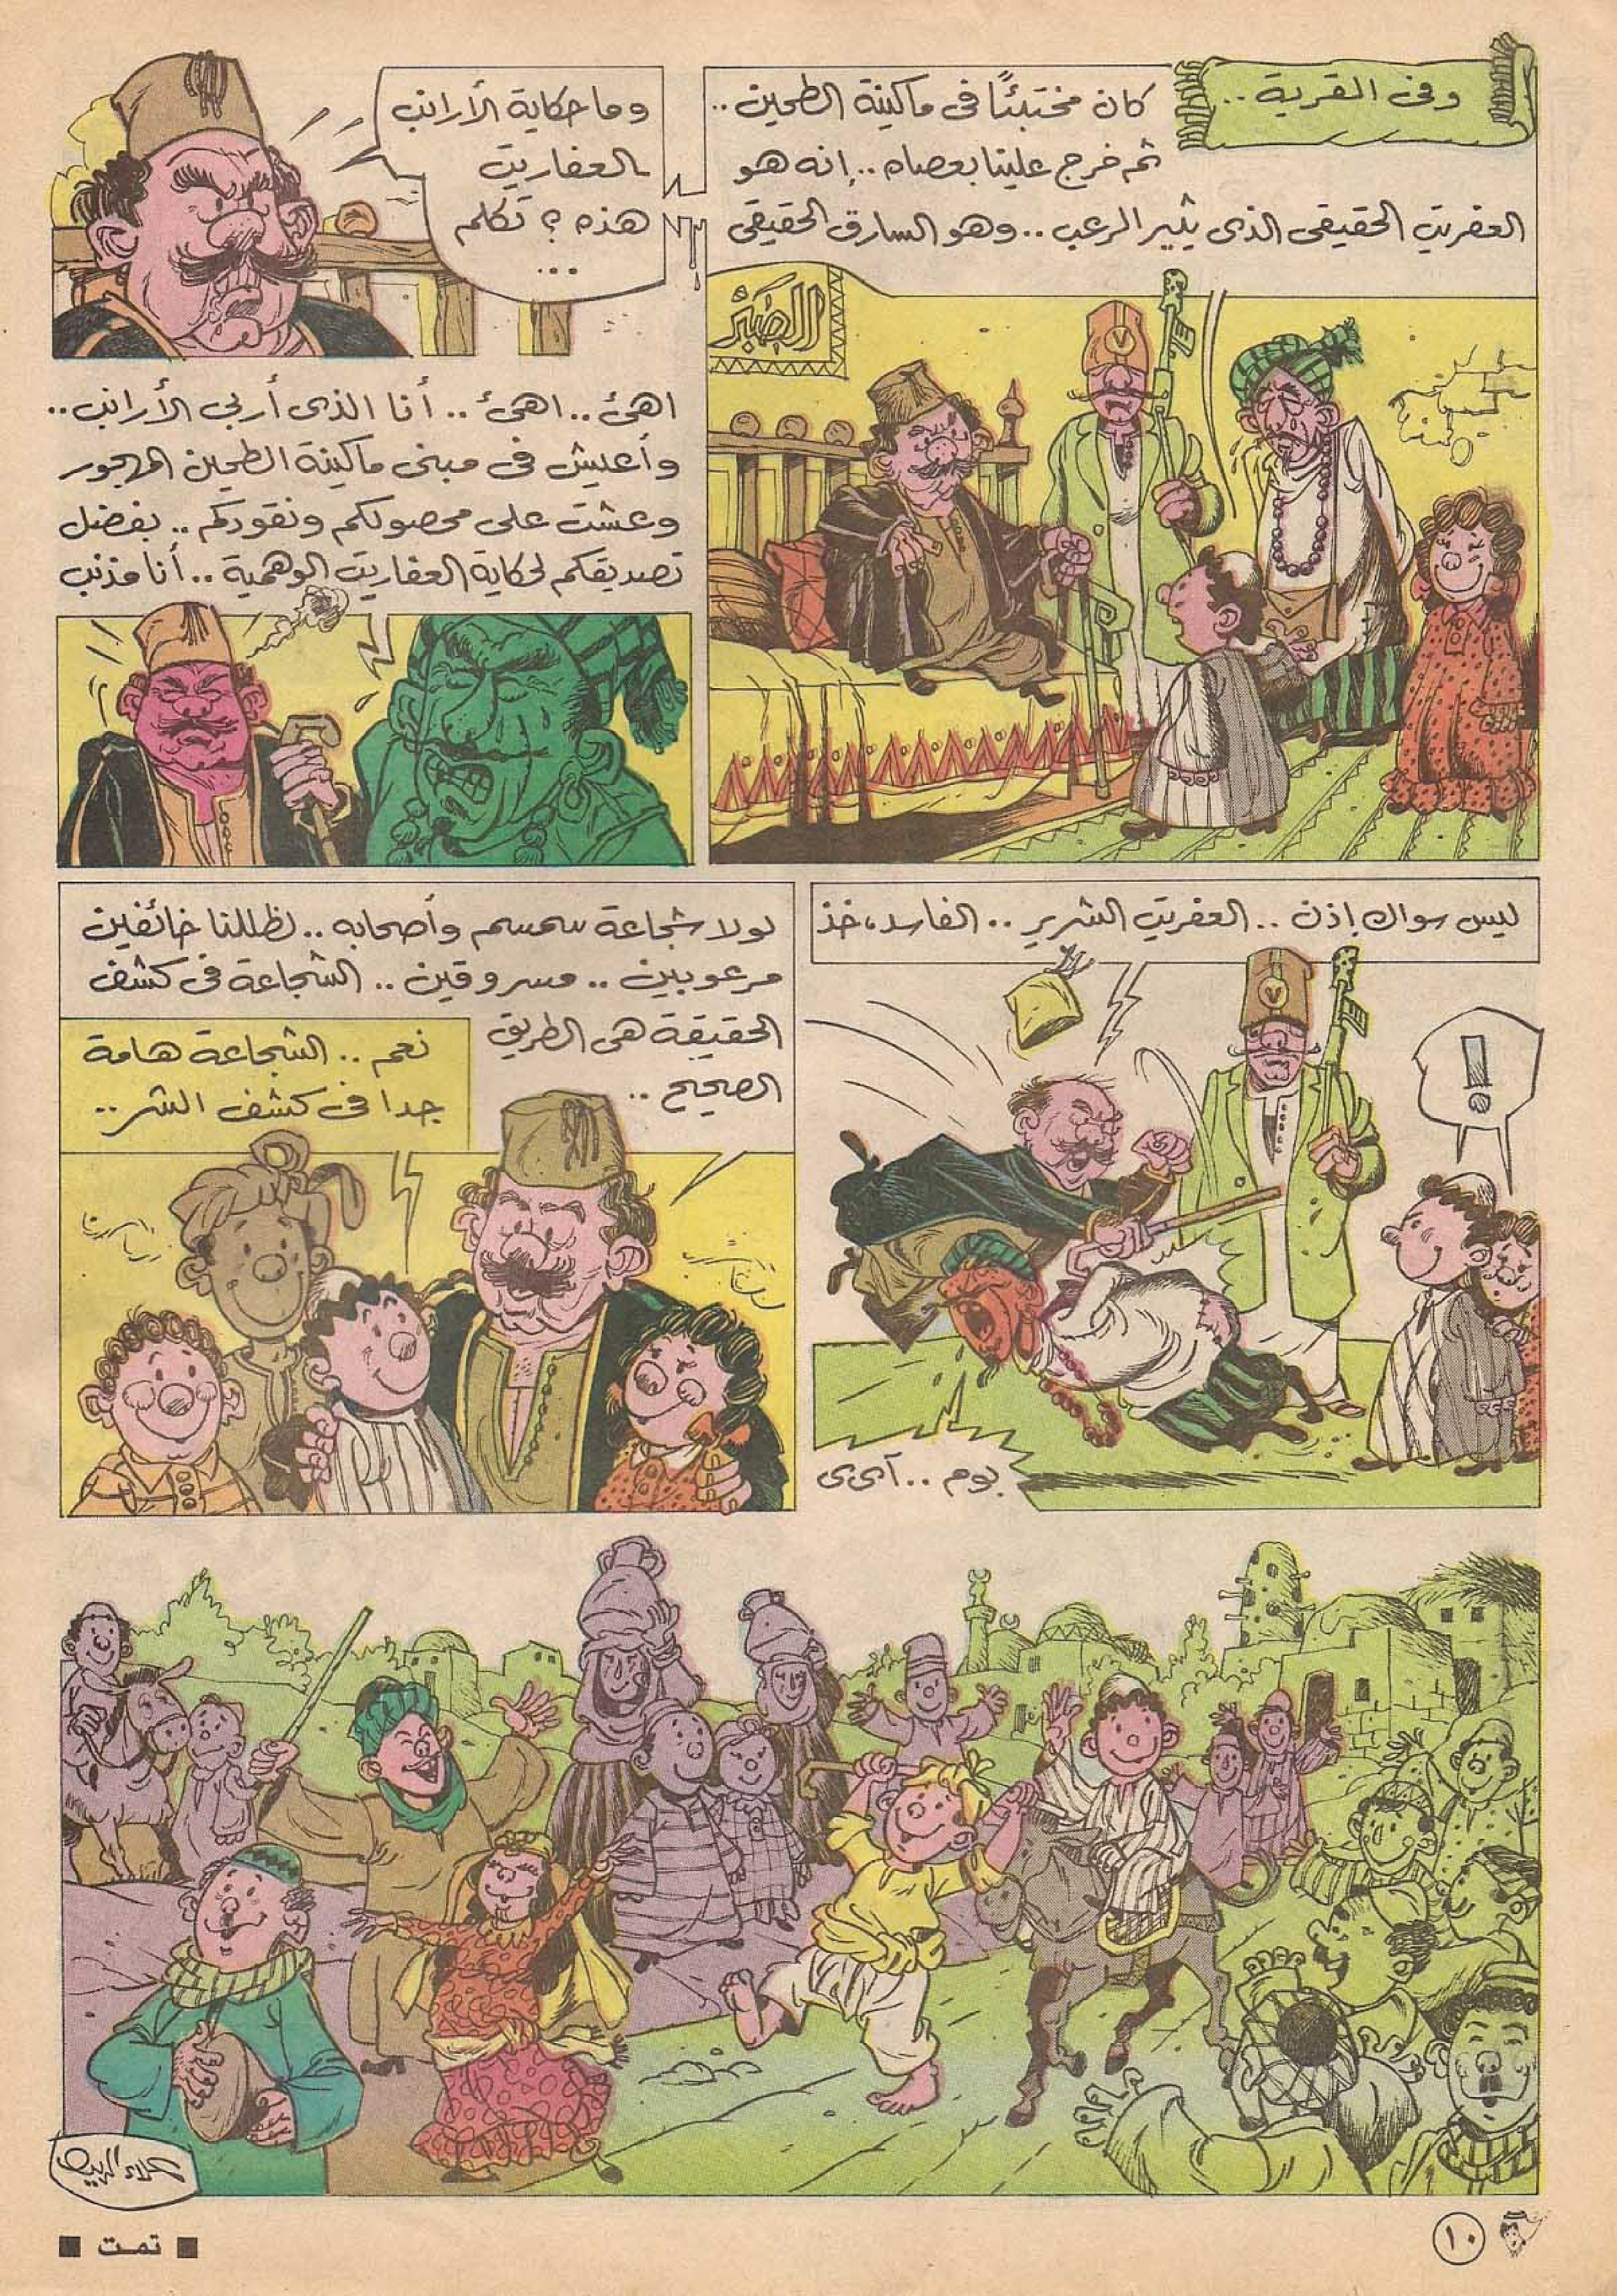 وفى القرية ..
كان مختبئًا فى ماكينة الطحين ..
ثم خرج علينا بعصاه .. إنه هو
العفريت الحقيقى الذى يثير الرعب .. وهو السارق الحقيقى
الصبر
وما حكاية الأرانب
العفاريت
هذه ؟ تكلم
...
اهئ .. اهئ .. أنا الذى أربى الأرانب ..
وأعيش فى مبنى ماكينة الطحين المهجور
وعشت على محصولكم ونقودكم .. بفضل
تصديقكم لحكاية العفاريت الوهمية .. أنا مذنب
ليس سواك إذن .. العفريت الشرير .. الفاسد، خذ
!
بوم .. آى ى
لولا شجاعة سمسم وأصحابه .. لظللنا خائفين
مرعوبين .. مسروقين .. الشجاعة فى كشف
الحقيقة هى الطريق
الصحيح ..
نعم .. الشجاعة هامة
جدا فى كشف الشر ..
علاء
١٠
تمت